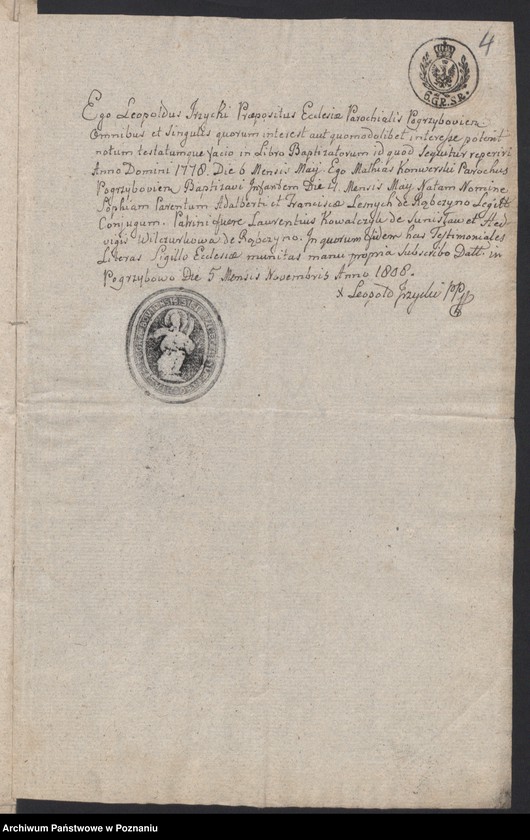 4
6.GR.SR.
Ego Leopoldus Irzycki Præpositus Eclesiæ Parochialis Pogrzybovien
Omnibus et Singulis quorum interest aut quomodolibet interese poterit
notum testatumque facio in Libro Baptizatorum id quod Sequitur reperiri
Anno Domini 1778. Die 6 Mensis Maij Ego Mathias Konwerski Parochus
Pogrzybovien Baptizavi Infantem Die 4. Mensis May Natam Nomine
Sophiam Parentum Adalberti et Franciscæ Lesnych de Rąbczyno Legitt:
Conjugum. Patrini fuere Laurentius Kowalczyk de Sunisław et Hed
vigis Wilczurkowa de Rąbczyno. In quorum fidem has Testimoniales
Literas Sigillo Ecclesiæ munitas manu propria Subscribo Datt. in
Pogrzybowo Die 5 Mensis Novembris Anno 1808.
x Leopold Irzycki PP
Archiwum Państwowe w Poznaniu